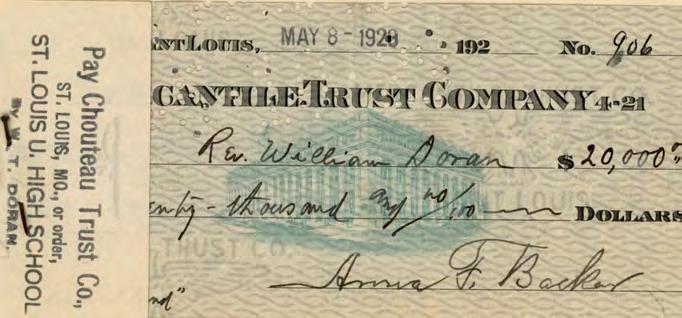 NT LOUIS, MAY 8 - 1920 192 No. 906
CANTILE TRUST COMPANY 4-21
Rev. William Doran $ 20,000
enty-thousand and no/100 DOLLARS
TRUST CO.
Anna F. Backer
nd"
Pay Chouteau Trust Co.,
ST. LOUIS, MO., or order,
ST. LOUIS U. HIGH SCHOOL
By W. T. DORAN.